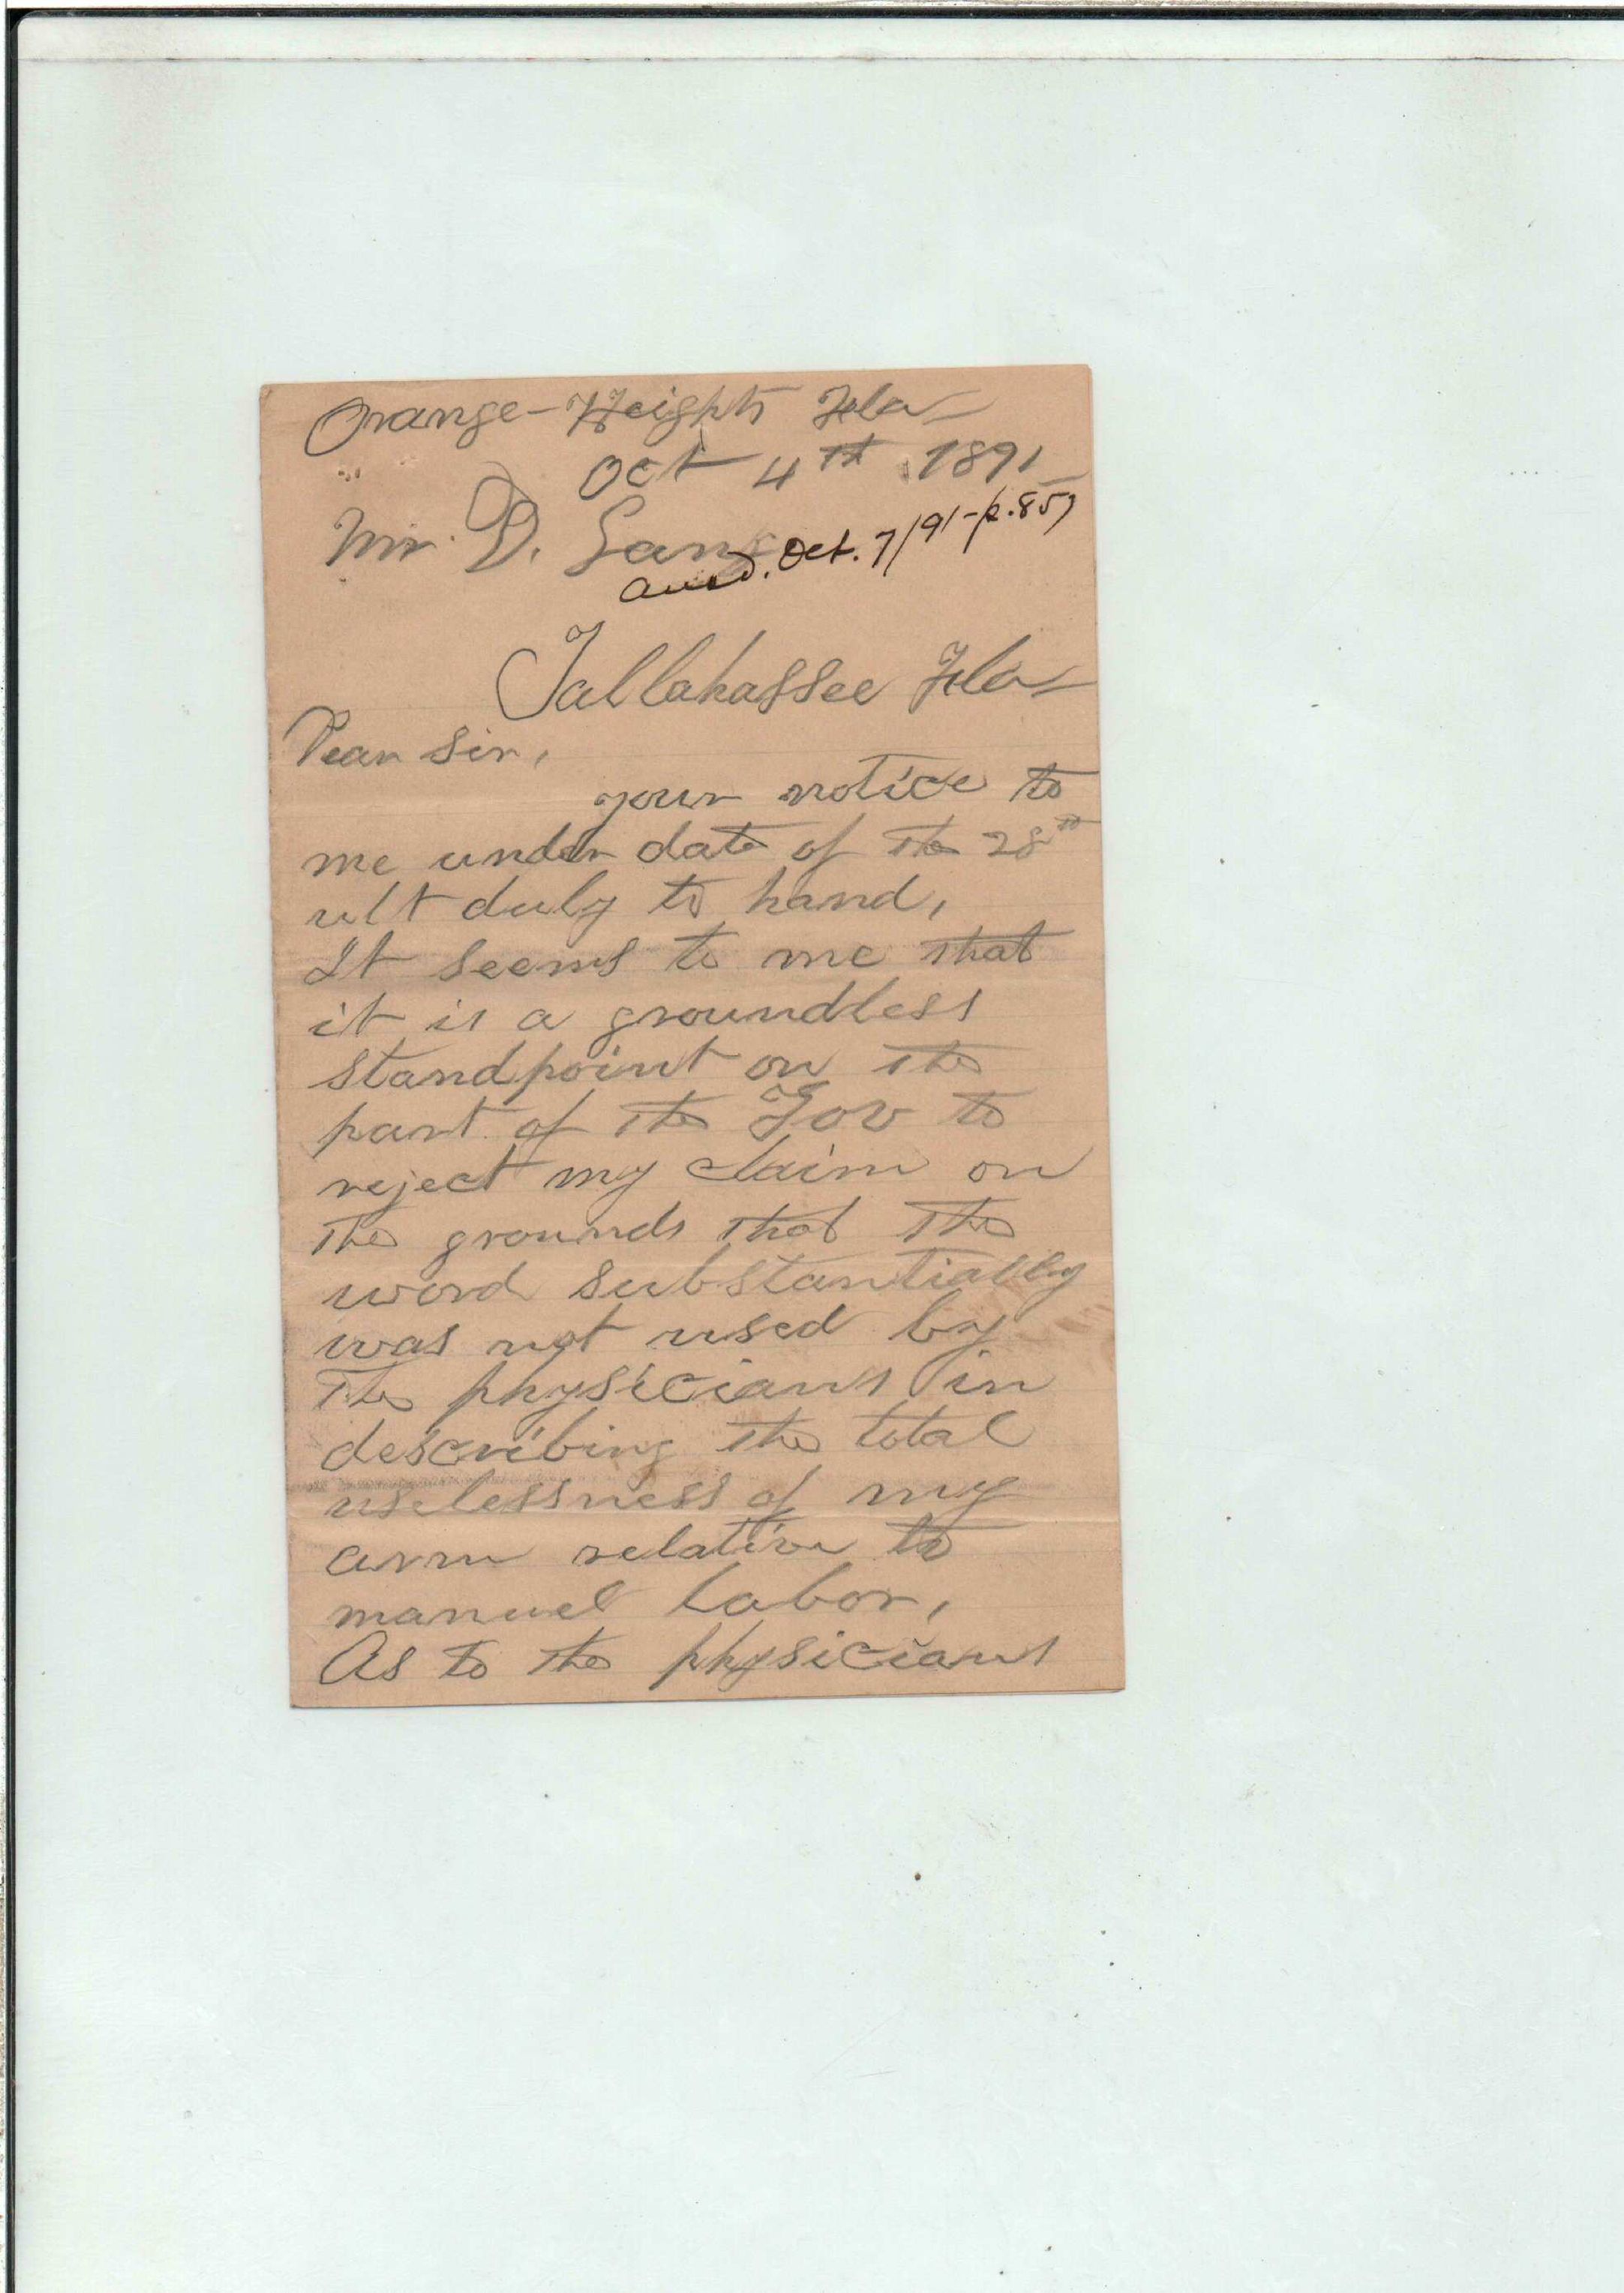 Orange-Heights Fla
Oct 4th 1891
Mr. D. Lang
Ansd. Oct. 7/91-p.857
Tallahassee Fla
Dear Sir,
your notice to
me under date of the 28th
ult duly to hand,
It seems to me that
it is a groundless
standpoint on the
part of the Gov to
reject my claim on
the grounds that the
word substantially
was not used by
the physicians in
describing the total
uselessness of my
arm relative to
manuel labor,
As to the physicians